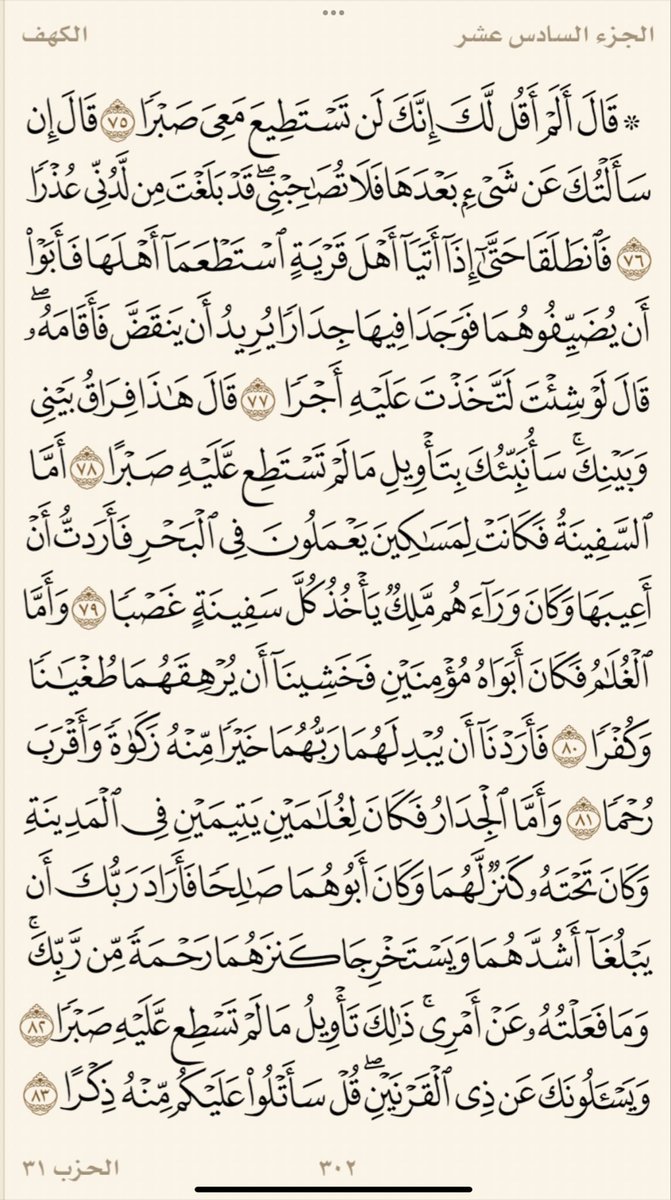 الجزء السادس عشر
الكهف
۞ قَالَ أَلَمْ أَقُل لَّكَ إِنَّكَ لَن تَسْتَطِيعَ مَعِىَ صَبْرًا ٧٥ قَالَ إِن
سَأَلْتُكَ عَن شَىْءٍۭ بَعْدَهَا فَلَا تُصَـٰحِبْنِى ۖ قَدْ بَلَغْتَ مِن لَّدُنِّى عُذْرًا
٧٦ فَٱنطَلَقَا حَتَّىٰٓ إِذَآ أَتَيَآ أَهْلَ قَرْيَةٍ ٱسْتَطْعَمَآ أَهْلَهَا فَأَبَوْا۟
أَن يُضَيِّفُوهُمَا فَوَجَدَا فِيهَا جِدَارًا يُرِيدُ أَن يَنقَضَّ فَأَقَامَهُۥ ۖ
قَالَ لَوْ شِئْتَ لَتَّخَذْتَ عَلَيْهِ أَجْرًا ٧٧ قَالَ هَـٰذَا فِرَاقُ بَيْنِى
وَبَيْنِكَ ۚ سَأُنَبِّئُكَ بِتَأْوِيلِ مَا لَمْ تَسْتَطِع عَّلَيْهِ صَبْرًا ٧٨ أَمَّا
ٱلسَّفِينَةُ فَكَانَتْ لِمَسَـٰكِينَ يَعْمَلُونَ فِى ٱلْبَحْرِ فَأَرَدتُّ أَنْ
أَعِيبَهَا وَكَانَ وَرَآءَهُم مَّلِكٌ يَأْخُذُ كُلَّ سَفِينَةٍ غَصْبًا ٧٩ وَأَمَّا
ٱلْغُلَـٰمُ فَكَانَ أَبَوَاهُ مُؤْمِنَيْنِ فَخَشِينَآ أَن يُرْهِقَهُمَا طُغْيَـٰنًا
وَكُفْرًا ٨٠ فَأَرَدْنَآ أَن يُبْدِلَهُمَا رَبُّهُمَا خَيْرًا مِّنْهُ زَكَوٰةً وَأَقْرَبَ
رُحْمًا ٨١ وَأَمَّا ٱلْجِدَارُ فَكَانَ لِغُلَـٰمَيْنِ يَتِيمَيْنِ فِى ٱلْمَدِينَةِ
وَكَانَ تَحْتَهُۥ كَنزٌ لَّهُمَا وَكَانَ أَبُوهُمَا صَـٰلِحًا فَأَرَادَ رَبُّكَ أَن
يَبْلُغَآ أَشُدَّهُمَا وَيَسْتَخْرِجَا كَنزَهُمَا رَحْمَةً مِّن رَّبِّكَ ۚ
وَمَا فَعَلْتُهُۥ عَنْ أَمْرِى ۚ ذَٰلِكَ تَأْوِيلُ مَا لَمْ تَسْطِع عَّلَيْهِ صَبْرًا ٨٢
وَيَسْـَٔلُونَكَ عَن ذِى ٱلْقَرْنَيْنِ ۖ قُلْ سَأَتْلُوا۟ عَلَيْكُم مِّنْهُ ذِكْرًا ٨٣
٣٠٢
الحزب ٣١